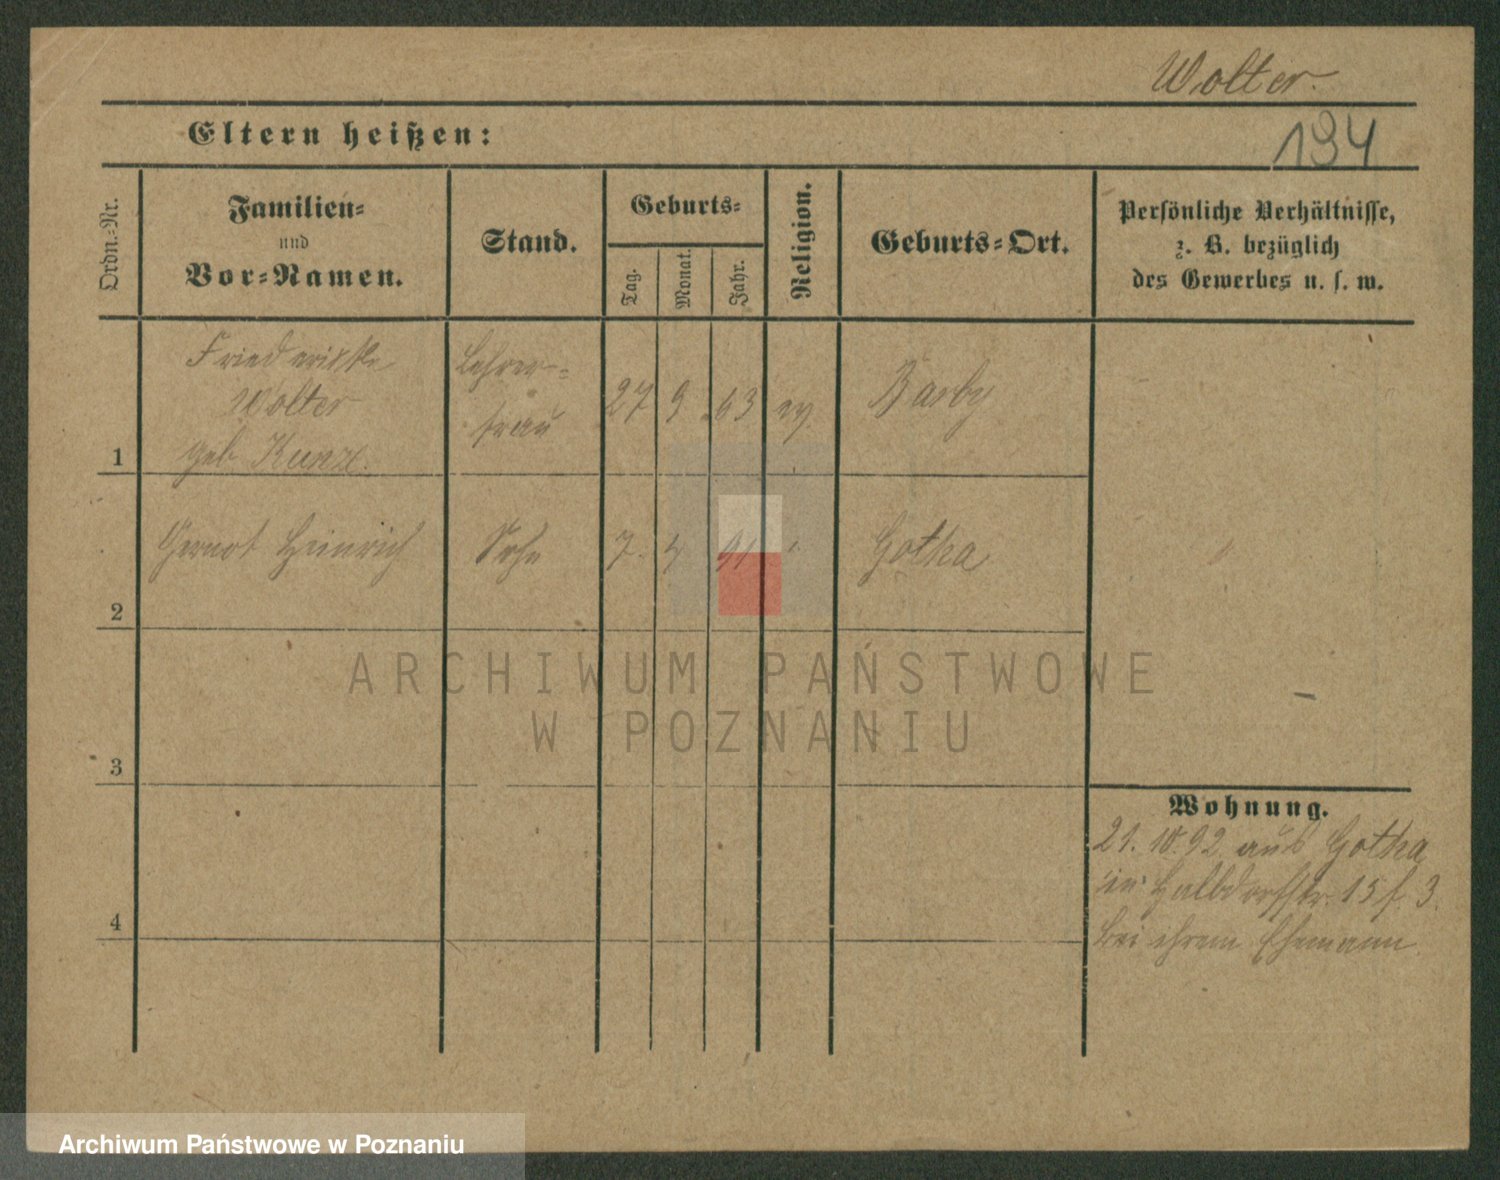 Wolter.
Eltern heißen:
194
Ordn.-Nr.
Familien-
und
Vor-Namen.
Stand.
Geburts-
Tag.
Monat.
Jahr.
Religion.
Geburts-Ort.
Persönliche Verhältnisse,
z. B. bezüglich
des Gewerbes u. s. w.
1
Friederikke
Wolter
geb Kunze.
Lehrer-
frau
27
9
63
ev.
Barby
2
Gernot Heinrich
Sohn
7.
4
91
"
Gotha
3
4
Wohnung.
21. 10. 92 aus Gotha
in Halbdorfstr. 15 f. 3.
bei ihrem Ehemann
ARCHIWUM PAŃSTWOWE
W POZNANIU
Archiwum Państwowe w Poznaniu